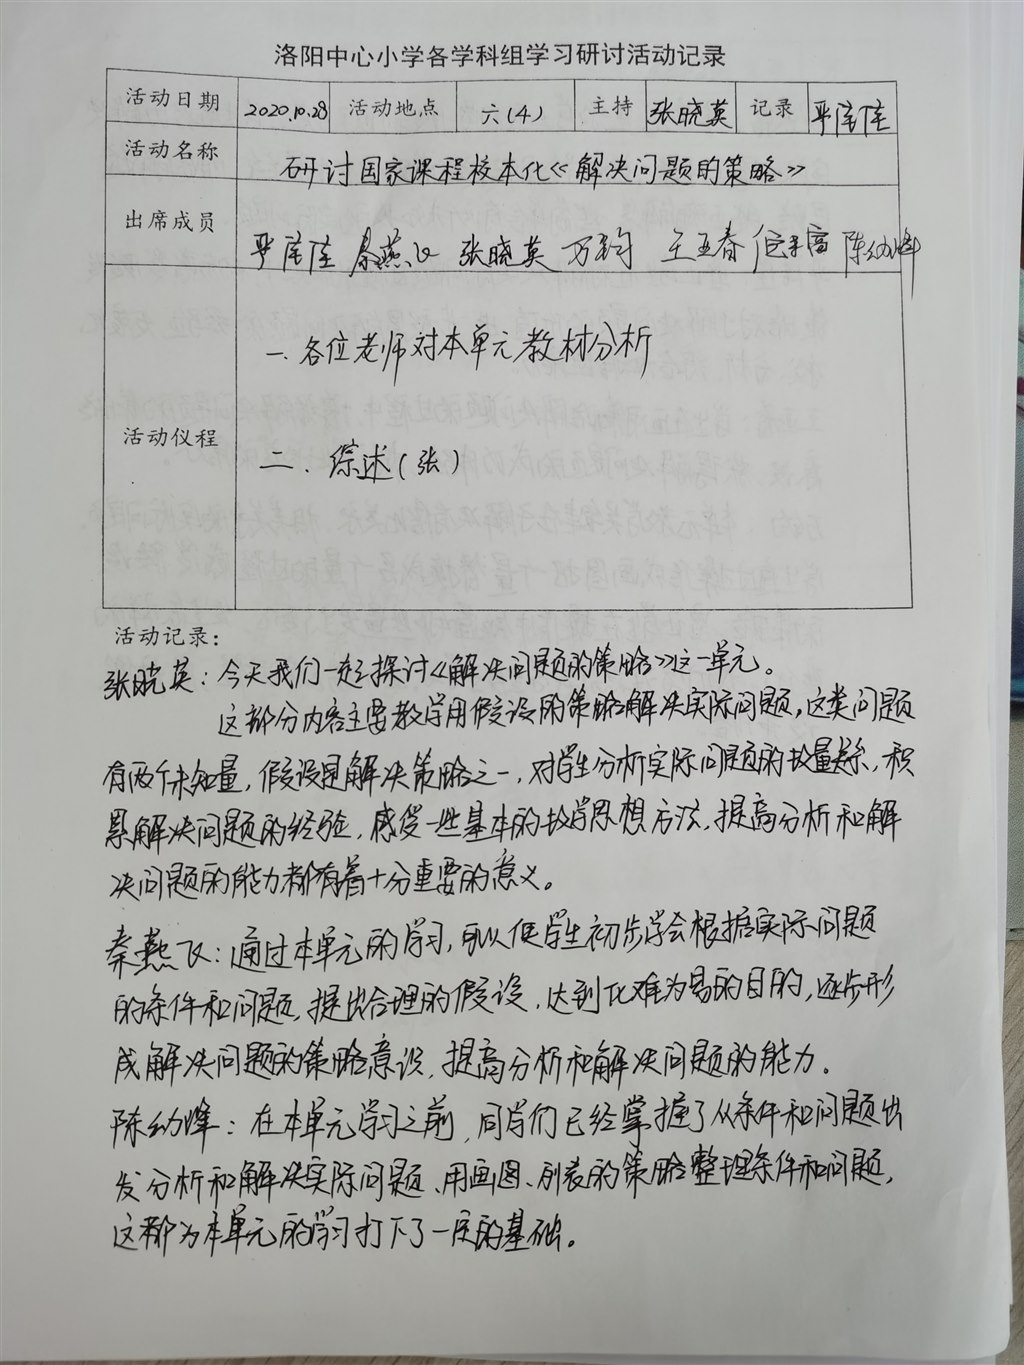 洛阳中心小学各学科组学习研讨活动记录
活动日期 2020.10.28 活动地点 六(4) 主持 张晓英 记录
活动名称 研讨国家课程校本化《解决问题的策略》
出席成员 秦燕飞 张晓英 万钧 王玉春 陈幼峰
一、各位老师对本单元教材分析
活动仪程
二、综述(张)
活动记录：
张晓英：今天我们一起探讨《解决问题的策略》这一单元。
这部分内容主要教学用假设的策略解决实际问题，这类问题
有两个未知量，假设是解决策略之一，对学生分析实际问题的数量关系，积
累解决问题的经验，感受一些基本的数学思想方法，提高分析和解
决问题的能力都有着十分重要的意义。
秦燕飞：通过本单元的学习，可以使学生初步学会根据实际问题
的条件和问题，提出合理的假设，达到化难为易的目的，逐步形
成解决问题的策略意识，提高分析和解决问题的能力。
陈幼峰：在本单元学习之前，同学们已经掌握了从条件和问题出
发分析和解决实际问题、用画图、列表的策略整理条件和问题，
这都为本单元的学习打下了一定的基础。